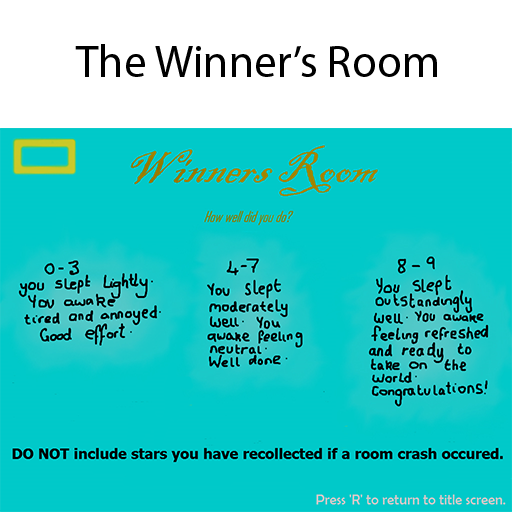 The Winner’s Room
Winners Room
How well did you do?
0-3
you slept Lightly.
You awake
tired and annoyed.
Good effort.
4-7
You slept
moderately
well. You
awake feeling
neutral.
Well done.
8-9
You slept
outstandingly
well. You awake
feeling refreshed
and ready to
take on the
world.
Congratulations!
DO NOT include stars you have recollected if a room crash occured.
Press 'R' to return to title screen.